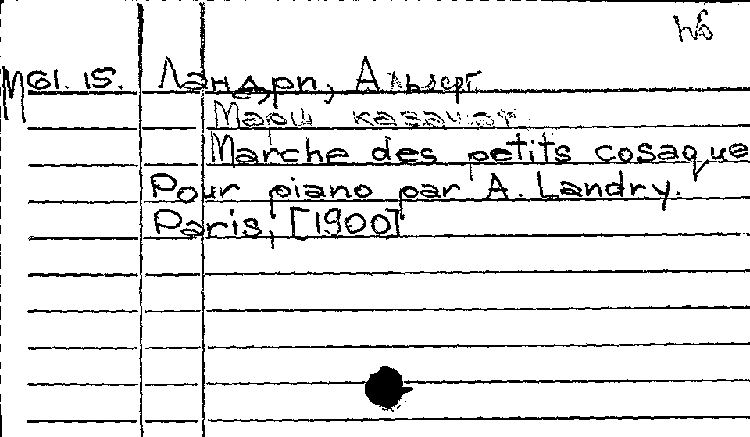 нб
М61.15. Ландри, Альберт
Марш казачат
Marche des petits cosaque
Pour piano par A. Landry.
Paris, [1900]